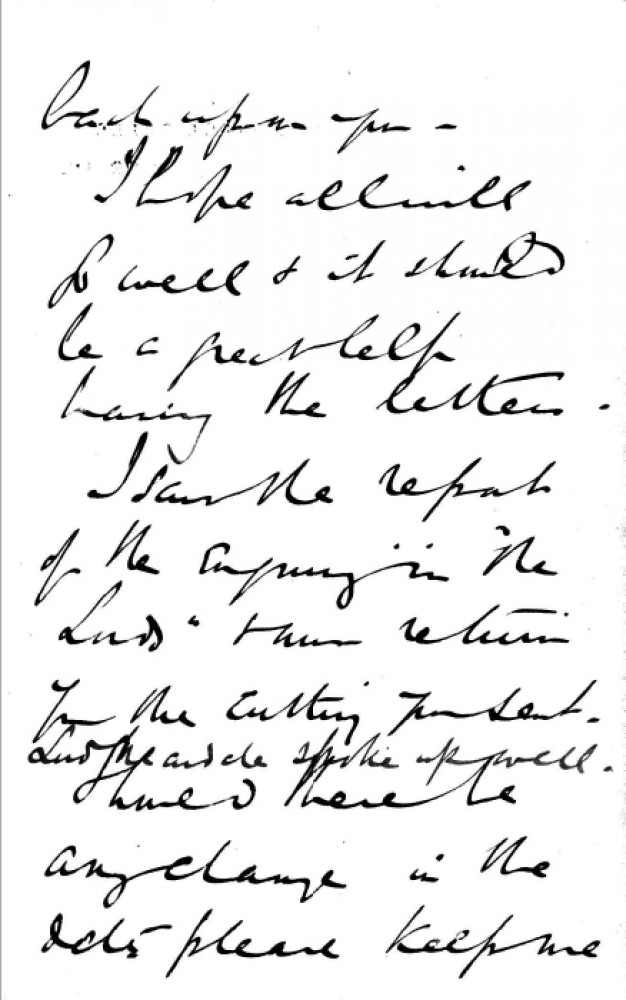 back upon you -
I hope all will
go well & it should
be a great help
having the letters.
I saw the report
of the Enquiry in "the
Lords" & now return
you the cutting you sent.
Lord spoke up well.
Should there be
any change in the
date please keep me